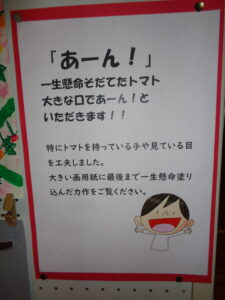 「あーん！」
一生懸命そだてたトマト
大きな口であーん！と
いただきます！！
特にトマトを持っている手や見ている目
を工夫しました。
大きい画用紙に最後まで一生懸命塗り
込んだ力作をご覧ください。